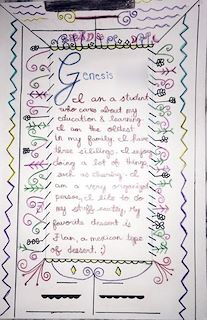 Genesis
I am a student
who cares about my
education & learning.
I am the oldest
in my family. I have
three siblings. I enjoy
doing a lot of things
such as I
am a very organized
person, I like to do
my stuff neatly. My
favorite dessert is
Flan, a mexican type
of dessert. :)